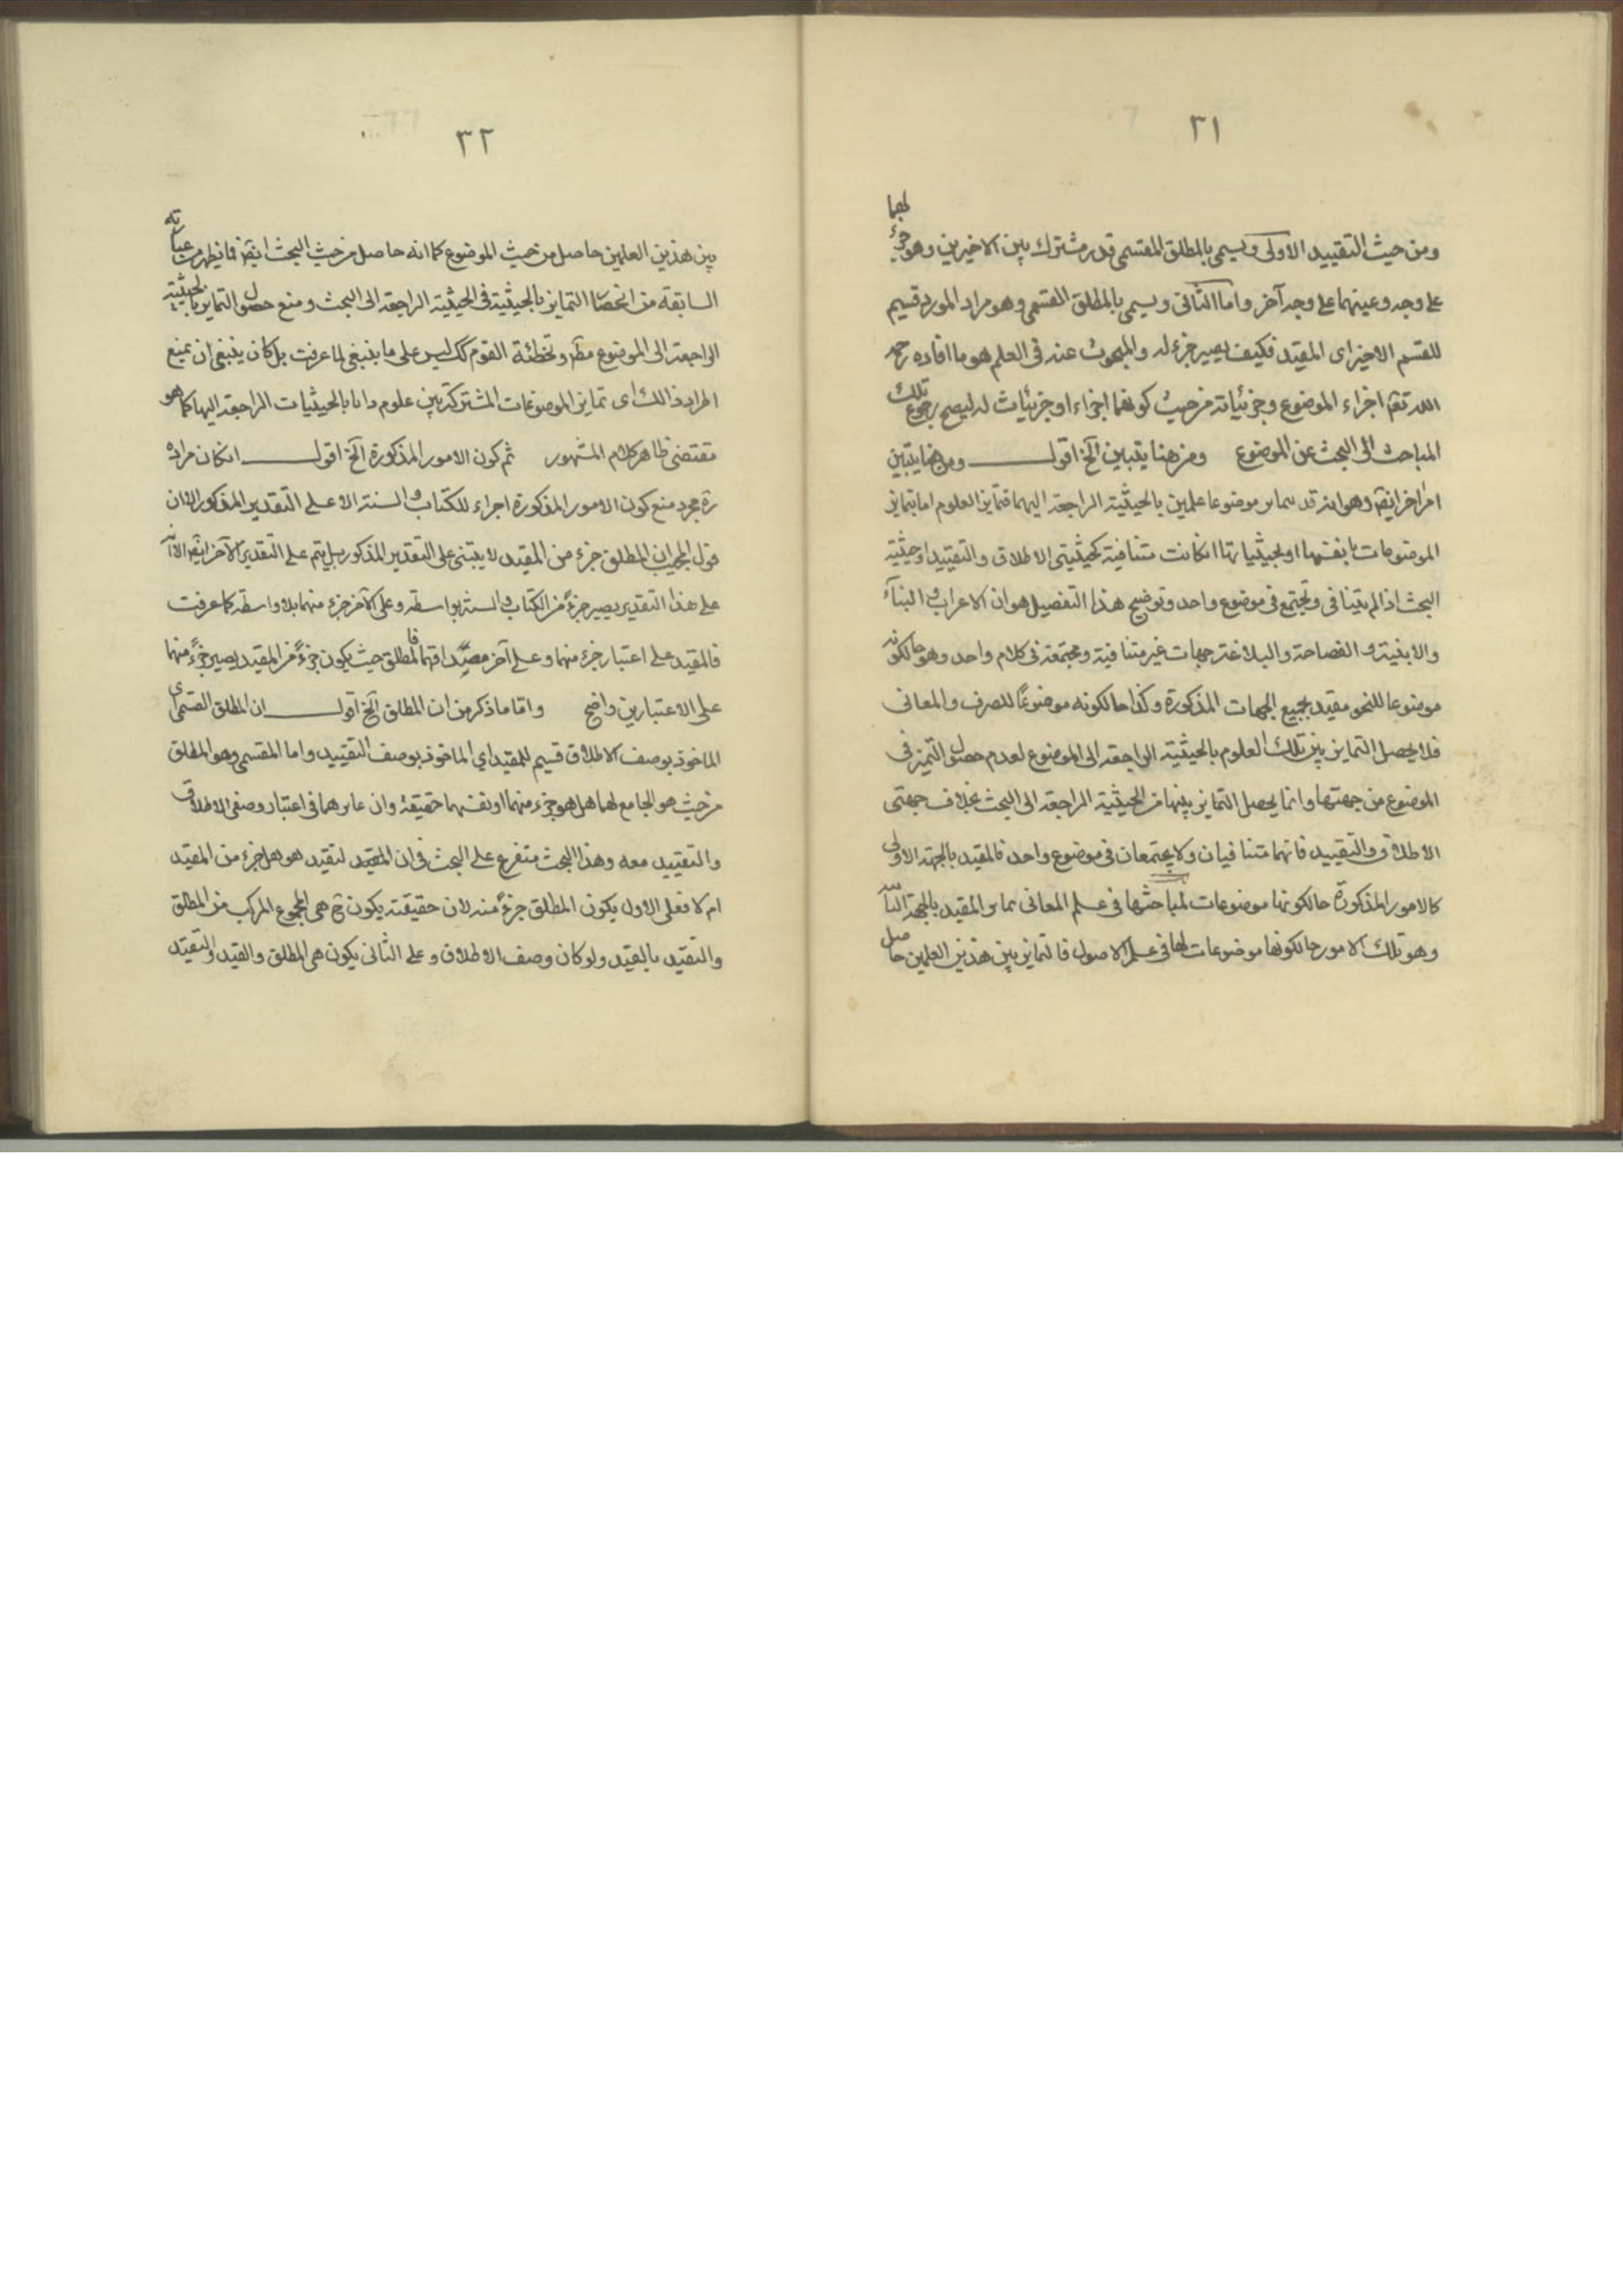 ٣١
ومن حيث التقييد الاولى ويسمى بالمطلق المقسمى قدر مشترك بين الاخيرين وهو جزء لهما
على وجه وعينهما على وجه آخر واما الثانى ويسمى بالمطلق القسمى وهو مراد المورد قسيم
للقسم الاخير اى المقيد فكيف يصير جزء له والمبحوث عنه فى العلم هو ما افاده رحمه
الله تعم اجزاء الموضوع وجزئياته من حيث كونهما اجزاء او جزئيات له ليصح رجوع تلك
المباحث الى البحث عن الموضوع ومن هنا يتبين آلخ اقول ومن هنا يتبين
امر اخر ايضا وهو انه قد تمايز موضوعا علمين بالحيثية الراجعة اليهما فتمايز العلوم اما بتمايز
الموضوعات بانفسها او بحيثياتها انكانت متنافية كحيثيتى الاطلاق والتقييد او حيثية
البحث اذا لم يتنافى وتجتمع فى موضوع واحد وتوضيح هذا التفصيل هو ان الاعراب والبناء
والابنية والفصاحة والبلاغة جهات غير متنافية ومجتمعة فى كلام واحد وهو حالكونه
موضوعا للنحو مقيد بجميع الجهات المذكورة وكذا حالكونه موضوعًا للصرف والمعانى
فلا يحصل التمايز بين تلك العلوم بالحيثية الراجعة الى الموضوع لعدم حصول التميز فى
الموضوع من جهتها وانما يحصل التمايز بينها من الحيثية الراجعة الى البحث بخلاف جهتى
الاطلاق والتقييد فانهما متنافيان ولا يجتمعان فى موضوع واحد فالمقيد بالجهة الاولى
كالامور المذكورة حالكونها موضوعات لمباحثها فى علم المعانى تمايز المقيد بالجهة
وهو تلك الامور حالكونها موضوعات لها فى علم الاصول فالتمايز بين هذين العلمين حاصل
٣٢
بين هذين العلمين حاصل من حيث الموضوع كما انه حاصل من حيث البحث ايضا فما يظهر من عباراته
السابقة من انحصار التمايز بالحيثية فى الحيثية الراجعة الى البحث ومنع حصول التمايز بالحيثية
الراجعة الى الموضوع مطلقا وتخطئة القوم كك ليس على ما ينبغى لما عرفت بل كان ينبغى ان يمنع
اطراد ذالك اى تمايز الموضوعات المشتركة بين علوم بالحيثيات الراجعة اليها كما هو
مقتضى ظاهر كلام المشهور ثم كون الامور المذكورة آلخ اقول انكان مراده
ره مجرد منع كون الامور المذكورة اجزاء للكتاب والسنة الا على التقدير المذكور فان
قول المجيب ان المطلق جزء من المقيد لا يبتنى على التقدير المذكور بل يتم على التقدير الآخر ايضا
على هذا التقدير يصير جزءً من الكتاب والسنة بواسطة وعلى الآخر جزء منهما بلا واسطة كما عرفت
فالمقيد على اعتبار جزء منهما وعلى آخر فالمطلق حيث يكون جزءً من المقيد يصير جزءً منهما
على الاعتبارين واضح واما ما ذكر من ان المطلق آلخ اقول ان المطلق القسمى اى
الماخوذ بوصف الاطلاق قسيم للمقيد اي الماخوذ بوصف التقييد واما المقسمى وهو المطلق
من حيث هو الجامع لهما هل هو جزء منهما او نفسهما حقيقة وان غايرهما فى اعتبار وصفى الاطلاق
والتقييد معه وهذا البحث متفرع على البحث فى ان المقيد لتقيد هو هل جزء من المقيد
ام لا فعلى الاول يكون المطلق جزءً منه لان حقيقته يكون ح هى المجموع المركب من المطلق
والتقيد بالقيد ولو كان وصف الاطلاق وعلى الثانى يكون هى المطلق والقيد والتقيد